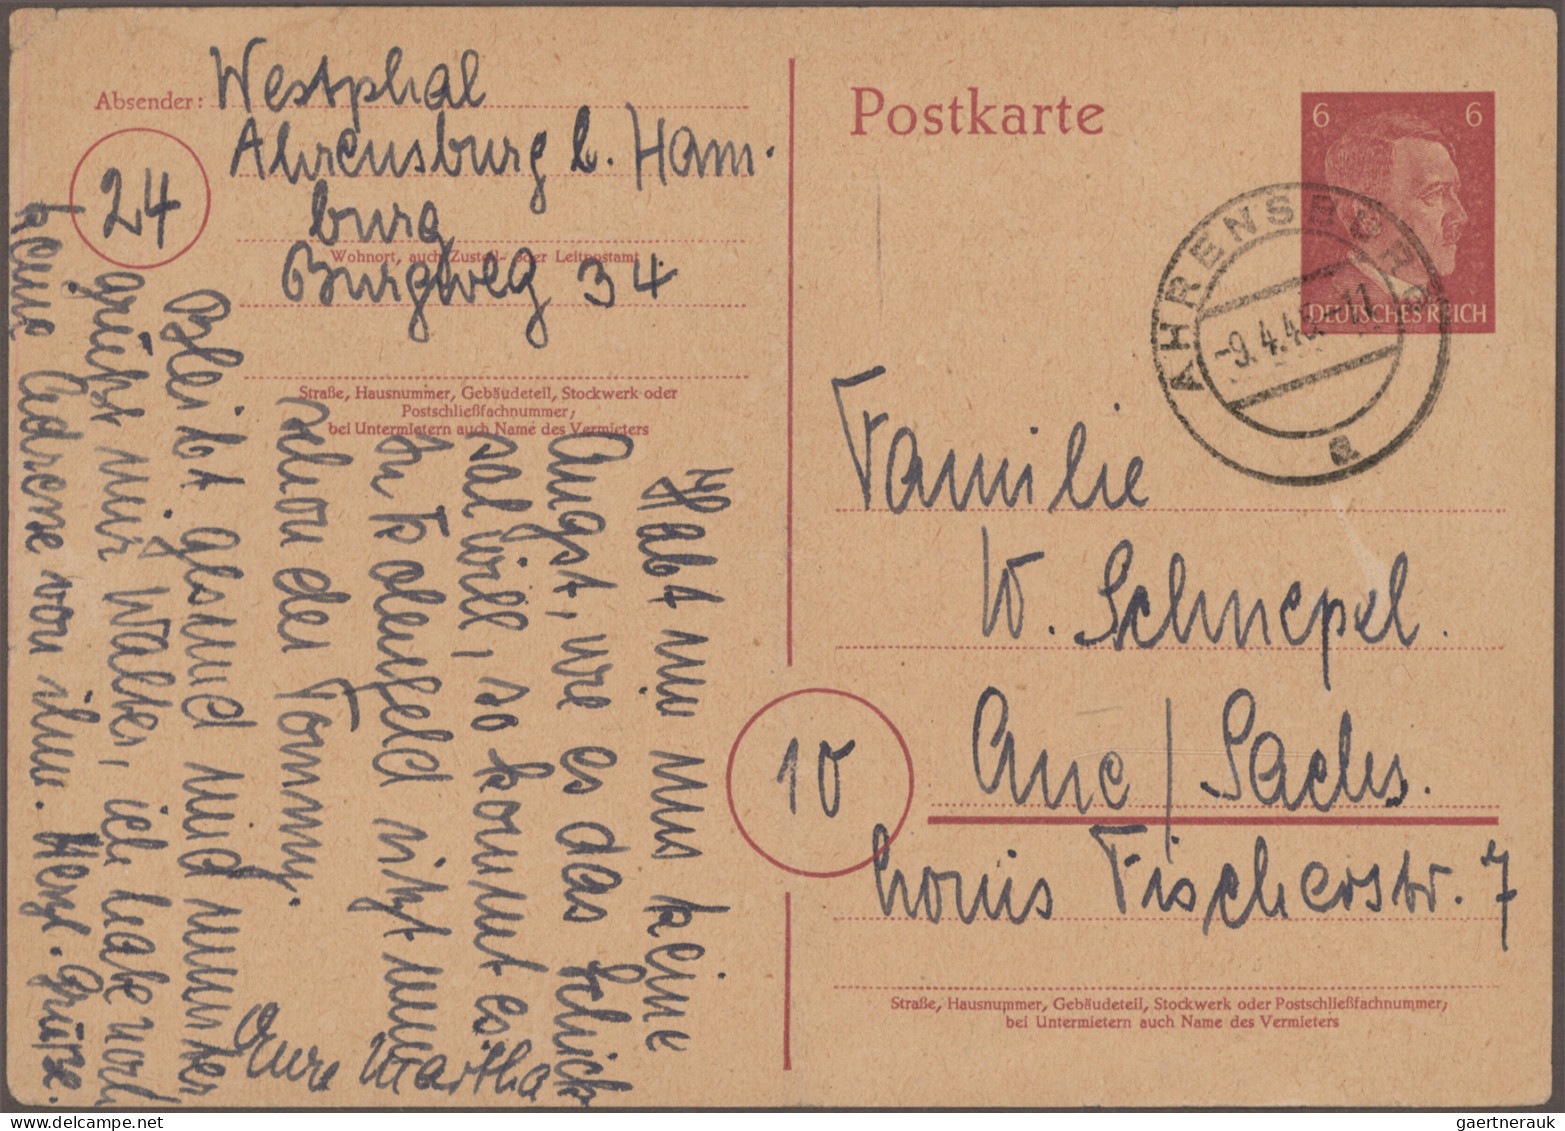 Absender: Westphal
Ahrensburg b. Ham-
burg
Wohnort, auch Zustell- oder Leitpostamt
Burgweg 34
24
Straße, Hausnummer, Gebäudeteil, Stockwerk oder
Postschließfachnummer;
bei Untermietern auch Name des Vermieters
Habt nur um uns keine
Angst, wie es das Schick
sal will, so kommt es.
In Kolenfeld sitzt nun
schon der Tommy.
Bleibt gesund und munter
grüßt mir Walter, ich habe noch
keine Adresse von ihm. Herzl. Grüße
Eure Martha
Postkarte
6 6
DEUTSCHES REICH
AHRENSBURG
-9.4.45.-11
a
Familie
W. Schnepel.
Aue/Sachs.
10
Louis Fischerstr. 7
Straße, Hausnummer, Gebäudeteil, Stockwerk oder Postschließfachnummer;
bei Untermietern auch Name des Vermieters
gaertnerauk @ delcampe.net